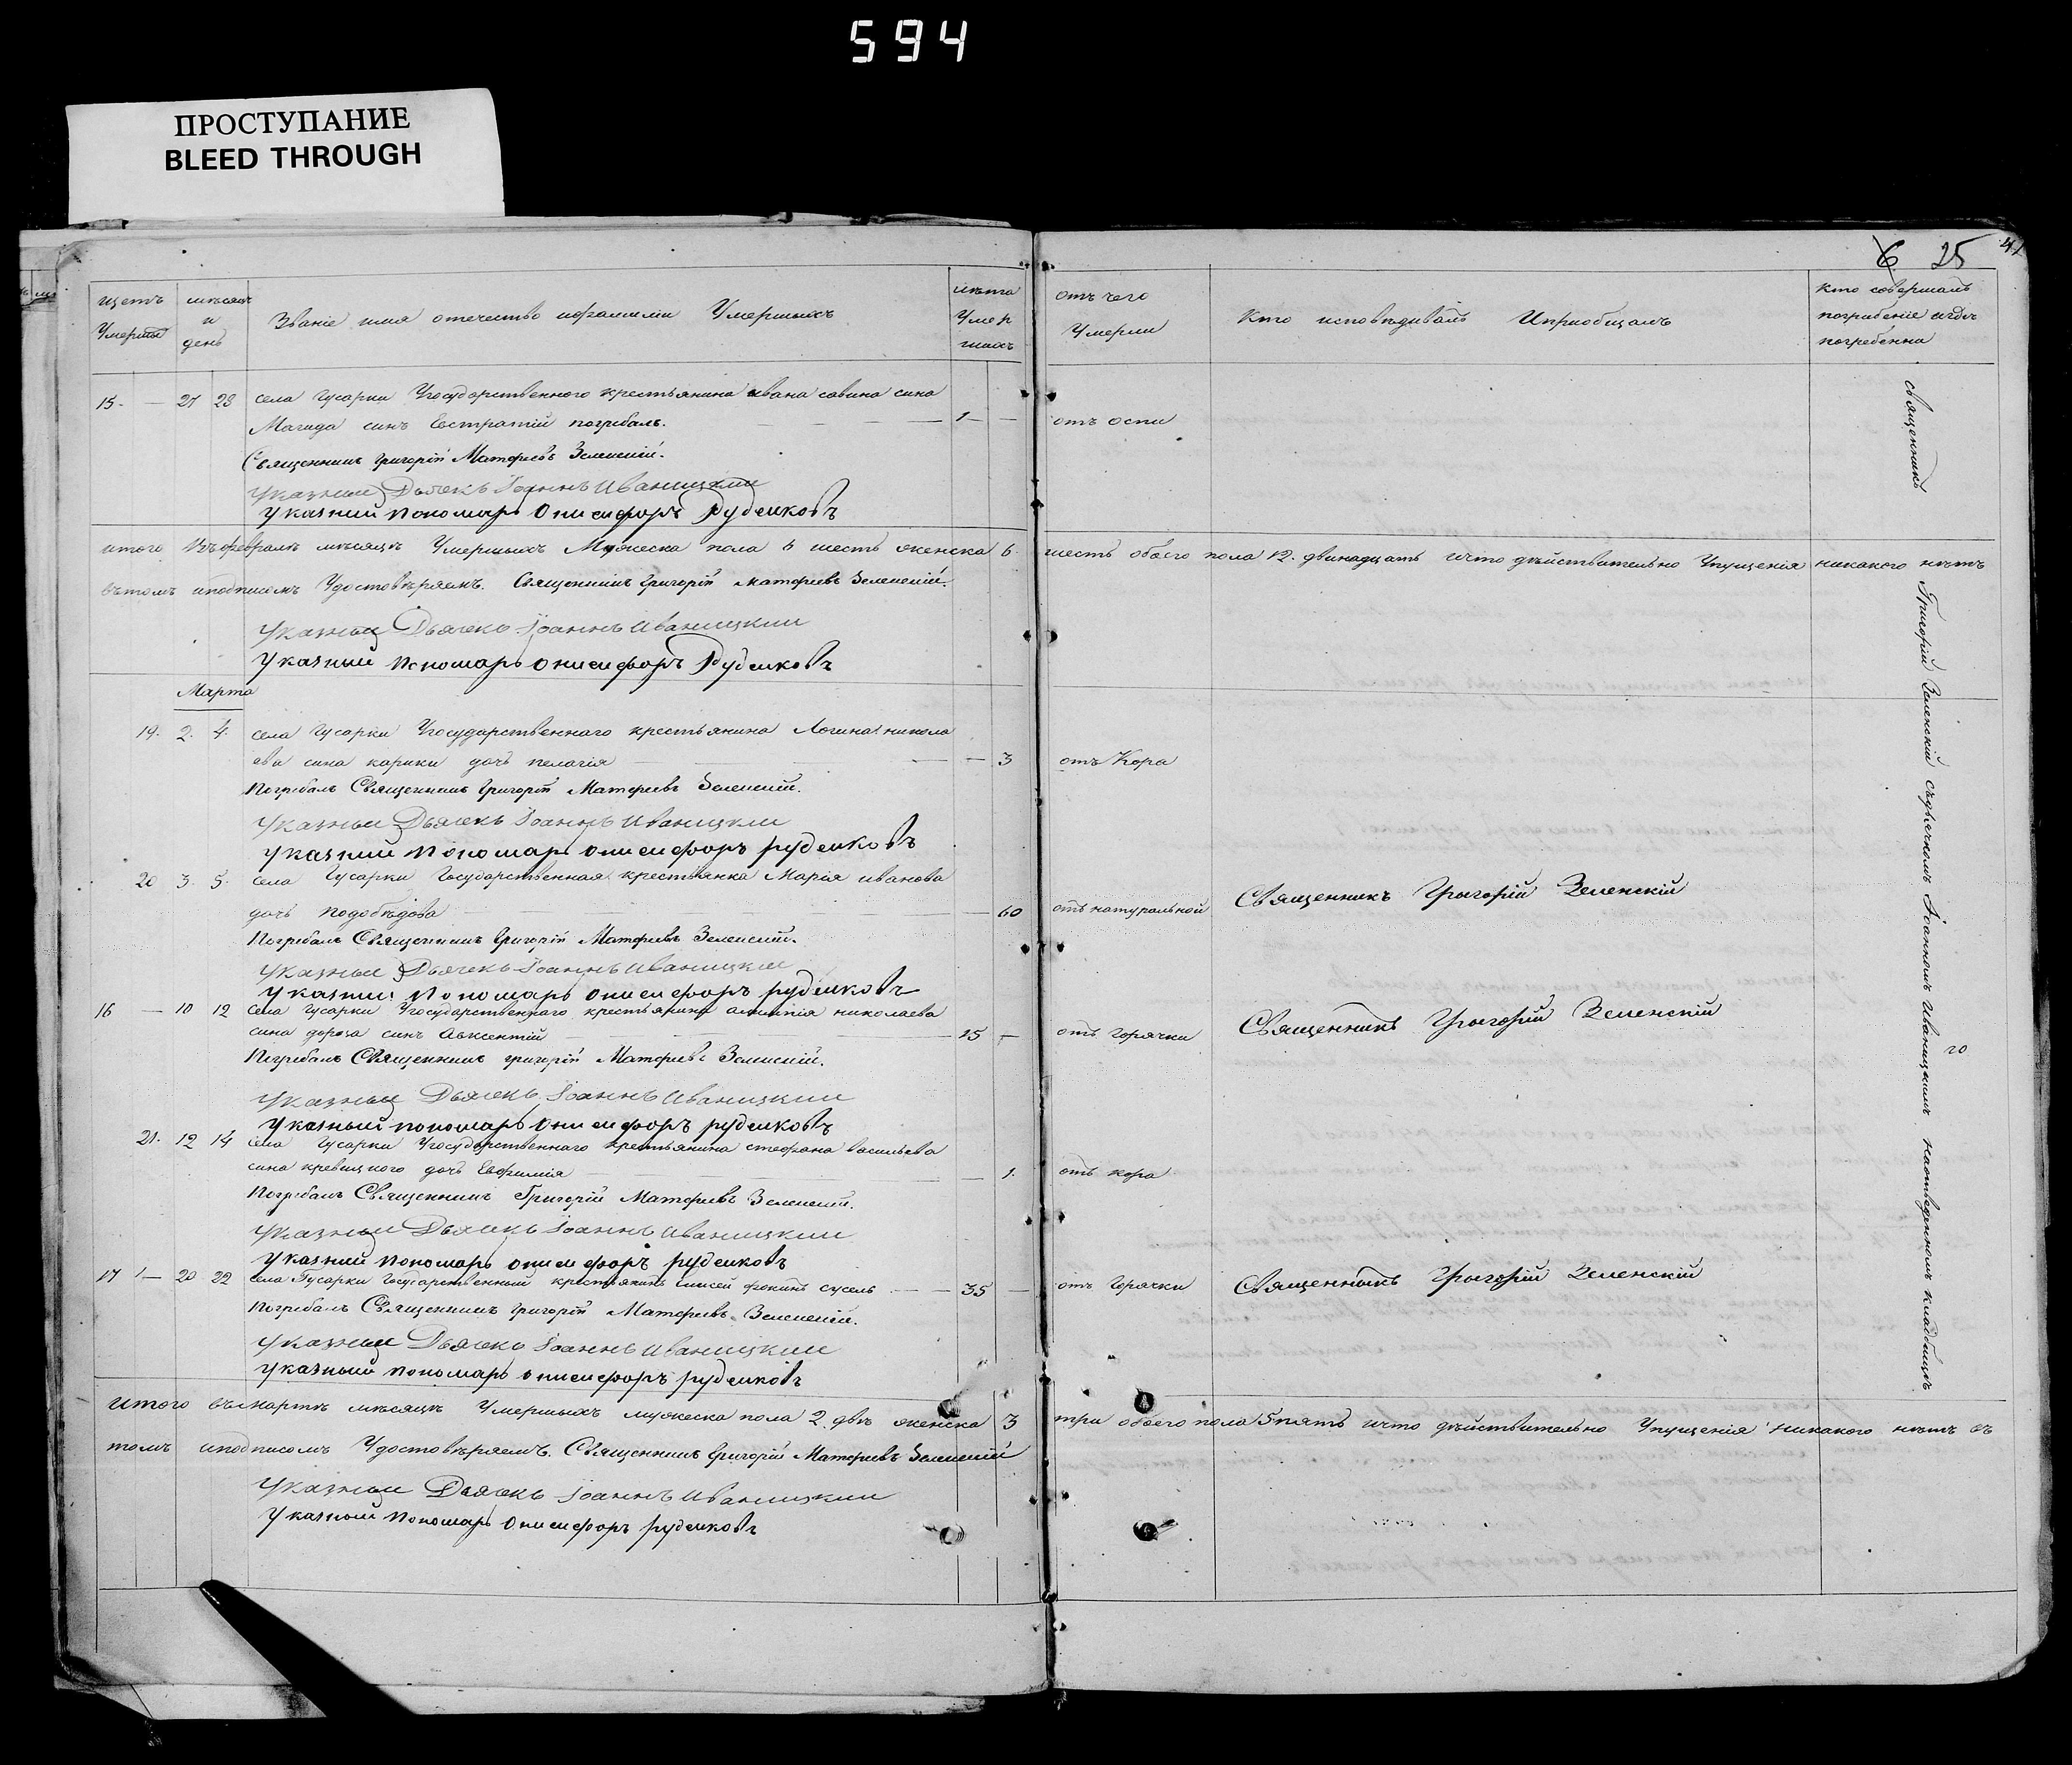 594
ПРОСТУПАНИЕ
BLEED THROUGH
6 25 41
щетъ Умершы
мѣсяцъ и день
Званіе имя отечество ифамиліи Умершыхъ
лѣта Умер шихъ
отъ чего Умерли
Кто исповѣдивалъ Ипріобщалъ
кто совершалъ погребеніе игдѣ погребенна
15. — 27 28 села Гусарки Угосударственного крестьянина ивана савина сина
Магида синъ Евстратій погребалъ. — — — 1 — отъ оспи
Священникъ Григорій Матфеевъ Зеленскій.
Указный Дьячекъ Іоаннъ Иваницкий
Указний пономарь Онисифоръ Руденковъ
итого въ февралѣ мѣсяцѣ Умершыхъ Мужеска пола 6 шесть женска 6. шесть обоего пола 12. двинадцать ичто дѣйствительно Упущенія никакого нѣтъ
вътомъ иподписомъ Удостовѣряемъ. Священникъ Григорій Матфеевъ Зеленскій.
Указный Дьячекъ Іоаннъ Иваницкий
Указный пономарь Онисифоръ Руденковъ
Марта
19. 2. 4. села Гусарки Угосударственнаго крестьянина Логина никола
ева сина карики дочь пелагія — — — 3 отъ Кора
Погребалъ Священникъ Григорій Матфеевъ Зеленскій.
Указный Дьячекъ Іоаннъ Иваницкий
Указний пономарь Онисифоръ руденковъ
20 3. 5. села Гусарки Государственная крестьянка Марія иванова
дочь подобѣдова — — 60 отъ натуральной Священникъ Григорій Зеленскій
Погребалъ Священникъ Григорій Матфеевъ Зеленскій.
Указный Дьячекъ Іоаннъ Иваницкий
Указний Пономарь онисифоръ руденковъ
16 — 10 12 села Гусарки Угосударственнаго крестьянина николаева
сина синъ Авксентій — — 15 — отъ Горячки Священникъ Григорій Зеленскій
Погребалъ Священникъ Григорій Матфеевъ Зеленскій.
Указный Дьячекъ Іоаннъ Иваницкий
Указный пономарь Онисифоръ руденковъ
21. 12 14 села Гусарки Угосударственнаго крестьянина стефана васильева
сина кревицкого дочь Евфимія — — 1. отъ кора
Погребалъ Священникъ Григорій Матфеевъ Зеленскій.
Указный Дьячекъ Іоаннъ Иваницкий
Указний пономарь онисифоръ руденковъ
17 — 20 22 села Гусарки Государственный крестьянинъ фокинъ сусель — — 35 — отъ Горячки Священникъ Григорій Зеленскій
Погребалъ Священникъ Григорій Матфеевъ Зеленскій.
Указный Дьячекъ Іоаннъ Иваницкий
Указный пономарь онисифоръ руденковъ
Итого въ мартѣ мѣсяцѣ Умершыхъ мужеска пола 2. двѣ женска 3 три обоего пола 5 пять ичто дѣйствительно Упущенія никакого нѣтъ въ
томъ иподписомъ Удостовѣряемъ. Священникъ Григорій Матфеевъ Зеленскій
Указный Дьячекъ Іоаннъ Иваницкий
Указный пономарь Онисифоръ руденковъ
священникъ Григорій Зеленскій съдьячкомъ Іоанномъ Иваницкимъ наотведенномъ кладбищѣ
20